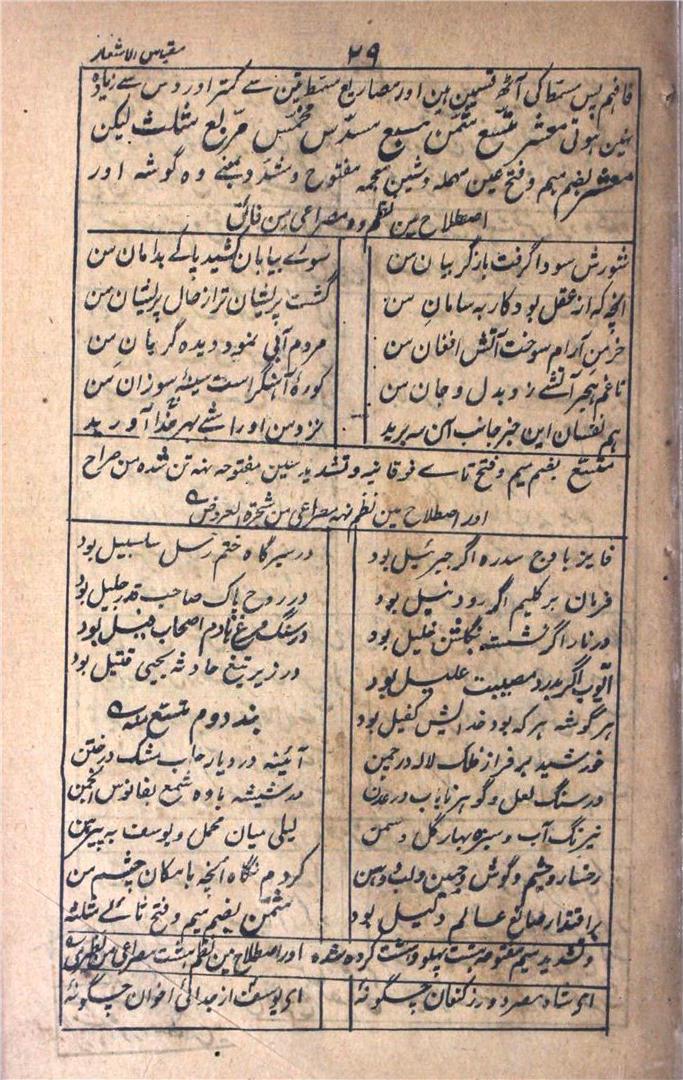 ٢٩
مقیاس الاشعار
فافہم پس مسمّط کی آٹھ قسمین ہین اور مصاریع مسمّط تین سے کمتر اور دس سے زیادہ
نہین ہوتی معشّر متسّع مثمّن مسبّع مسدّس مخمّس مربّع مثلث لیکن
معشّر بضم میم و فتح عین مہملہ و شین معجمہ مفتوح و مشدّد بمعنے دہ گوشہ اور
اصطلاح مین نظم دہ مصراعی من فائق
شورش سودا گرفت باز گریبان من سوے بیابان کشید پاے بدامان من
آنچہ کہ از عقل بود کار بہ سامان من گشت پریشان تر از حال پریشان من
خرمن آرام سوخت آتش افغان من مردم آبی نمود دیدہ گریان من
تا غم ہجر آتشے زد بدل و جان من کورۂ آہنگر است سینۂ سوزان من
ہم نفسان این خبر جانب آن مہ برید نزد من او را شبے بہر خدا آورید
متسّع بضم میم و فتح تاے فوقانیہ و تشدید سین مفتوحہ نہ تن شدہ من صراح
اور اصطلاح مین نظم نہ مصراعی من شجرة العروض
فایز باوج سدرہ اگر جبرئیل بود در سیرگاہ ختم رسل سلسبیل بود
فرمان بر کلیم اگر رود نیل بود در روح پاک صاحب قدر جلیل بود
در نار اگر نشستہ بگلشن خلیل بود در سنگ مرغ نادم اصحاب فیل بود
ایوب اگر بدرد مصیبت علیل بود در زیر تیغ حادثہ یحیی قتیل بود
ہر گوشہ ہر کہ بود خدایش کفیل بود
بند دوم متسّع
خورشید بر فراز فلک لالہ در چمن آئینہ در دیار حلب مشک در ختن
در سنگ لعل و گوہر نایاب در عدن در شیشہ بادہ شمع بفانوس انجمن
نیرنگ آب و سبزہ بہار گل و سمن لیلی میان محمل و یوسف بہ پیرہن
رخسار و چشم و گوش و جبین و لب و دہن کردم نگاہ آنچہ بامکان چشم من
بر اقتدار صانع عالم دلیل بود مثمّن بضم میم و فتح ثاے مثلثہ
و تشدید میم مفتوحہ ہشت پہلو و ہشت کردہ شدہ اور اصطلاح مین نظم ہشت مصراعی من نظیری
ای شاہ مصر دور ز کنعان چگونۂ ای یوسف از جدائی اخوان چگونۂ